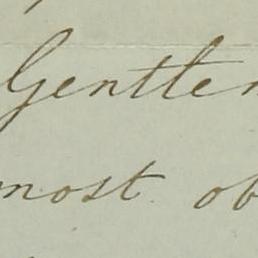 Gentle
most ob